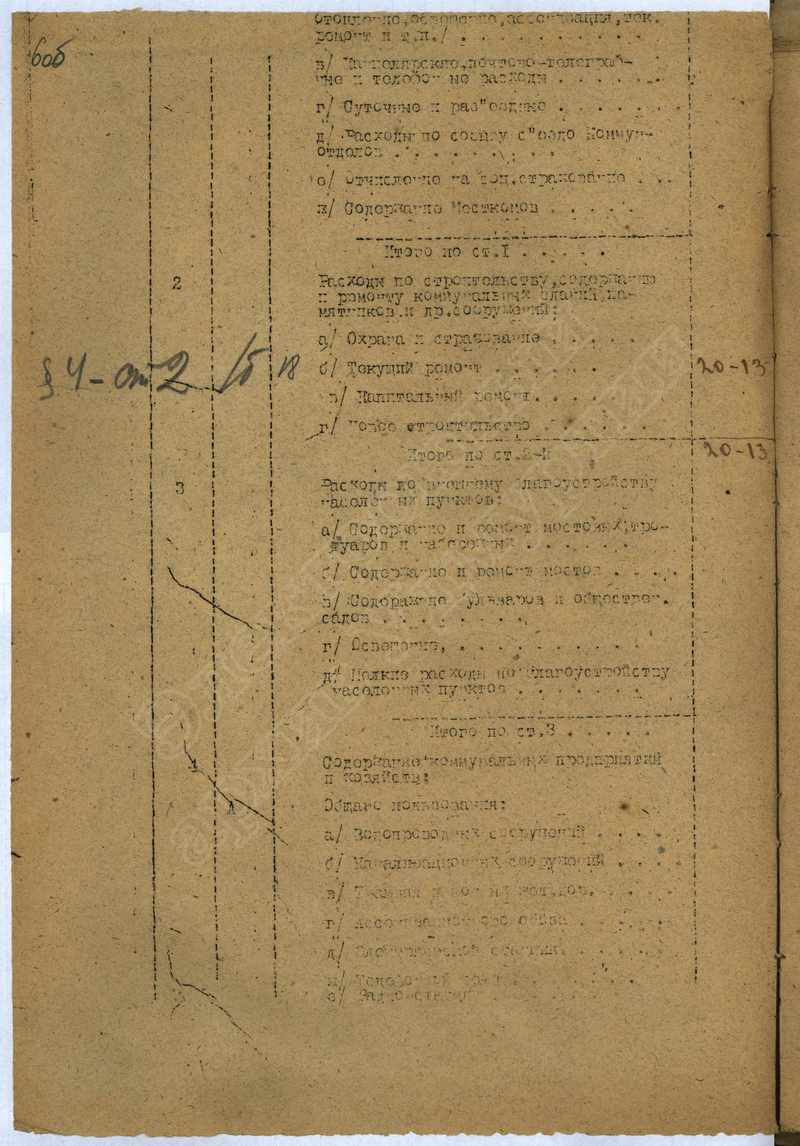 отопление, освещение, ассенизация, тек.
ремонт и т.п./ . . . . . . . . .
606
в/ Канцелярские, почтово-телеграф-
ные и телефонные расходы . . . . . .
г/ Суточные и раз"ездные . . . . . .
д/ Расходы по созыву с"ездо Коммун-
отделов . . . . . . . .
е/ Отчисление на соц.страхование . . .
ж/ Содержание Месткомов . . . . .
Итого по ст.I . . . . .
2
Расходы по строительству, содержанию
и ремонту коммунальных зданий, па-
мятников и др.сооружений:
а/ Охрана и страхование . . . . .
§ 4 - ст 2 /б 18
б/ Текущий ремонт . . . . . .
20-13
в/ Капитальный ремонт . . . .
г/ Новое строительство . . . . .
Итого по ст.2-й
20-13
3
Расходы по внешнему благоустройству
населенных пунктов:
а/ Содержание и ремонт мостовых, тро-
туаров и набережных . . . . . .
б/ Содержание и ремонт мостов . . . .
в/ Содержание бульваров и обществен.
садов . . . . . . .
г/ Освещение, . . . . . . . . .
д/ Мелкие расходы по благоустройству
населенных пунктов . . . . . .
Итого по ст.3 . . . . .
Содержание коммунальных предприятий
и хозяйств:
Общего пользования:
а/ Водопроводных сооружений . . . .
б/ Канализационных сооружений . . . .
в/
г/
д/